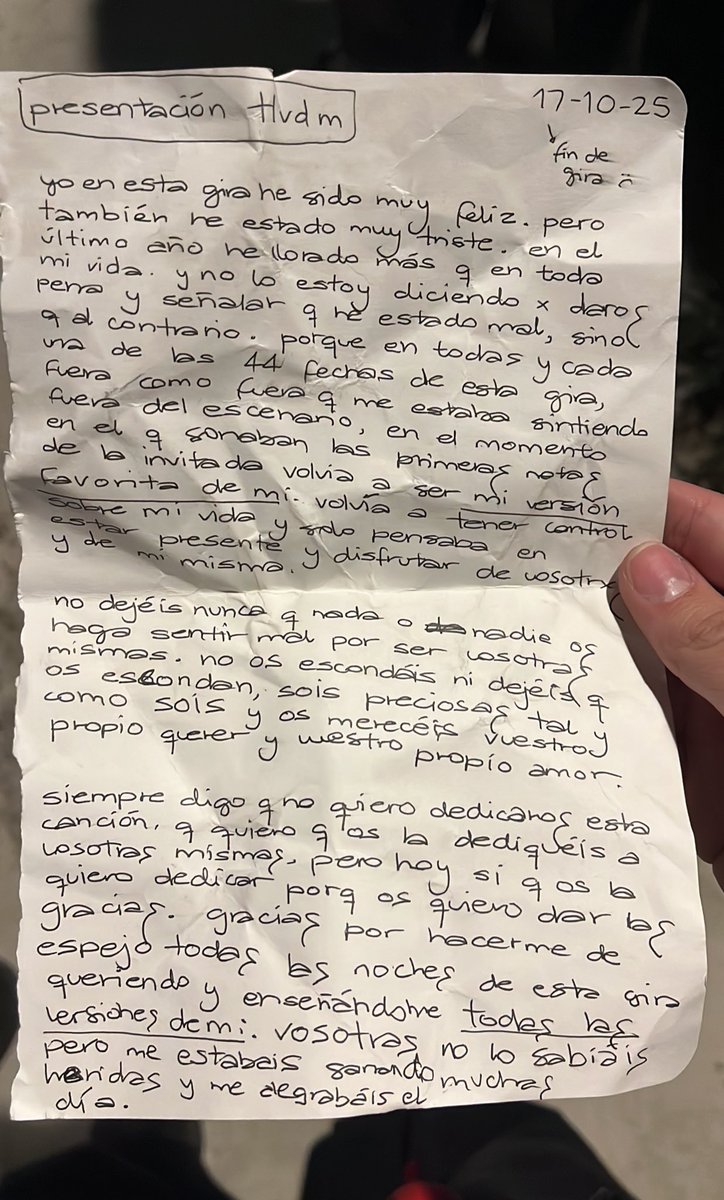 presentación Hvdm
17-10-25
fin de
gira :(
yo en esta gira he sido muy feliz. pero
también he estado muy triste. en el
último año he llorado más q en toda
mi vida. y no lo estoy diciendo x daros
pena y señalar q he estado mal, sino
q al contrario. porque en todas y cada
una de las 44 fechas de esta gira,
fuera como fuera q me estaba sintiendo
fuera del escenario, en el momento
en el q sonaban las primeras notas
de la invitada volvía a ser mi versión
favorita de mi. volvía a tener control
sobre mi vida y solo pensaba en
estar presente y disfrutar de vosotras
y de mi misma.
no dejéis nunca q nada o nadie os
haga sentir mal por ser vosotras
mismas. no os escondáis ni dejéis q
os escondan, sois preciosas tal y
como sois y os merecéis vuestro
propio querer y vuestro propio amor.
siempre digo q no quiero dedicaros esta
canción, q quiero q os la dediquéis a
vosotras mismas, pero hoy sí q os la
quiero dedicar porq os quiero dar las
gracias. gracias por hacerme de
espejo todas las noches de esta gira
queriendo y enseñándome todas las
versiones de mi. vosotras no lo sabíais
pero me estabais sanando muchas
heridas y me alegrabáis el
día.